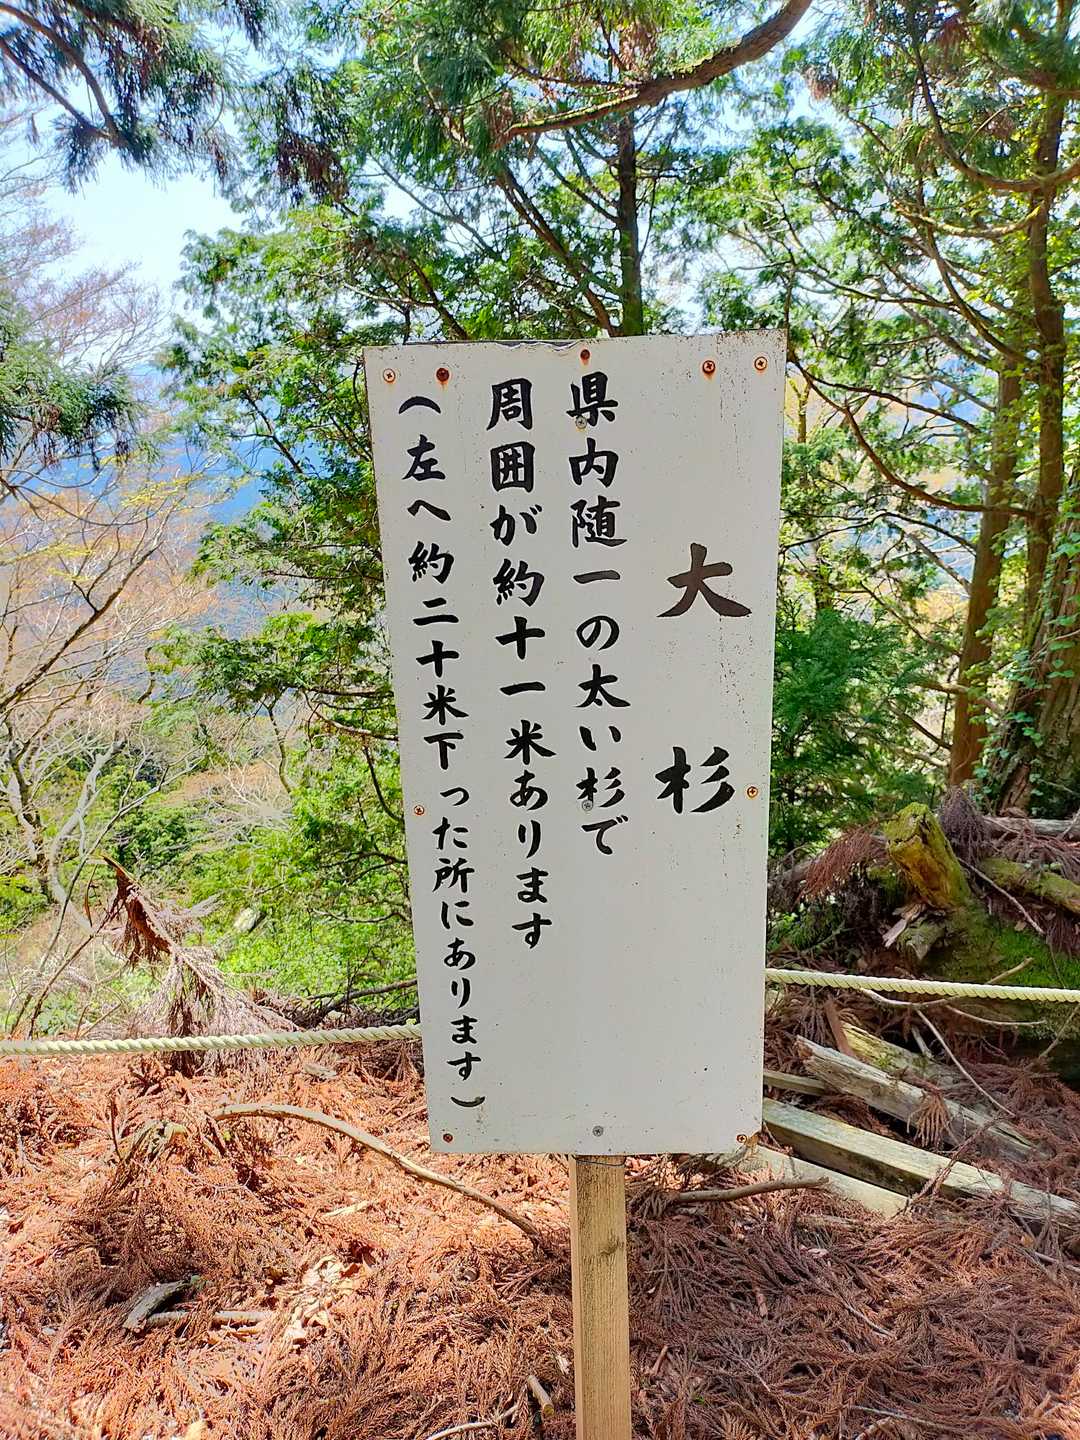 大杉
県内随一の太い杉で
周囲が約十一米あります
（左へ約二十米下った所にあります）